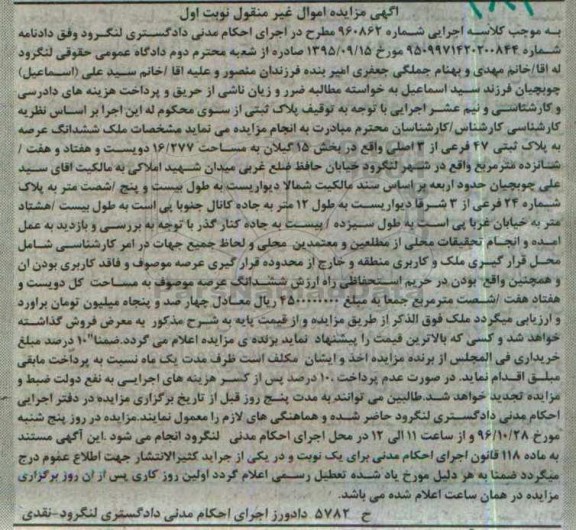 آگهی مزایده اموال غیر منقول نوبت اول
به موجب کلاسه اجرایی شماره ۹۶۰۸۶۲ مطرح در اجرای احکام مدنی دادگستری لنگرود وفق دادنامه
شماره ۹۵۰۹۹۷۱۴۲۰۲۰۰۸۴۴ مورخ ۱۳۹۵/۰۹/۱۵ صادره از شعبه محترم دوم دادگاه عمومی حقوقی لنگرود
له اقا/خانم مهدی و بهنام جملگی جعفری امیر بنده فرزندان منصور و علیه اقا /خانم سید علی (اسماعیل)
چوبچیان فرزند سید اسماعیل به خواسته مطالبه ضرر و زیان ناشی از حریق و پرداخت هزینه های دادرسی
و کارشناسی و نیم عشر اجرایی با توجه به توقیف پلاک ثبتی از سوی محکوم له این اجرا بر اساس نظریه
کارشناسی کارشناس/کارشناسان محترم مبادرت به انجام مزایده می نماید مشخصات ملک ششدانگ عرصه
به پلاک ثبتی ۴۷ فرعی از ۳ اصلی واقع در بخش ۱۵ گیلان به مساحت ۱۶/۲۷۷ دویست و هفتاد و هفت /
شانزده مترمربع واقع در شهر لنگرود خیابان حافظ ضلع غربی میدان شهید املاکی به مالکیت اقای سید
علی چوبچیان حدود اربعه بر اساس سند مالکیت شمالا دیواریست به طول بیست و پنج /شصت متر به پلاک
شماره ۲۴ فرعی از ۳ شرقا دیواریست به طول ۱۲ متر به جاده کانال جنوبا پی است به طول بیست /هشتاد
متر به خیابان غربا پی است به طول سیزده / بیست به جاده کنار گذر با توجه به بررسی و بازدید به عمل
امده و انجام تحقیقات محلی از مطلعین و معتمدین محلی و لحاظ جمیع جهات در امر کارشناسی شامل
محل قرار گیری ملک و کاربری منطقه و خارج از محدوده قرار گیری عرصه موصوف و فاقد کاربری بودن ان
و همچنین واقع بودن در حریم استحفاظی راه ارزش ششدانگ عرصه موصوف به مساحت کل دویست و
هفتاد هفت /شصت مترمربع جمعا به مبلغ ۴۵۰۰۰۰۰۰۰۰ ریال معادل چهار صد و پنجاه میلیون تومان براورد
و ارزیابی میگردد ملک فوق الذکر از طریق مزایده و از قیمت پایه به شرح مذکور به معرض فروش گذاشته
خواهد شد و کسی که بالاترین قیمت را پیشنهاد نماید برنده ی مزایده اعلام می گردد.ضمنا"۱۰ درصد مبلغ
خریداری فی المجلس از برنده مزایده اخذ و ایشان مکلف است ظرف مدت یک ماه نسبت به پرداخت مابقی
مبلغ اقدام نماید. در صورت عدم پرداخت ۱۰ درصد پس از کسر هزینه های اجرایی به نفع دولت ضبط و
مزایده تجدید خواهد شد.طالبین می توانند به مدت پنج روز قبل از تاریخ برگزاری مزایده در دفتر اجرایی
احکام مدنی دادگستری لنگرود حاضر شده و هماهنگی های لازم را معمول نمایند.مزایده در روز پنج شنبه
مورخ ۹۶/۱۰/۲۸ و از ساعت ۱۱ الی ۱۲ در محل اجرای احکام مدنی لنگرود انجام می شود .این آگهی مستند
به ماده ۱۱۸ قانون اجرای احکام مدنی برای یک نوبت و در یکی از جراید کثیرالانتشار جهت اطلاع عموم درج
میگردد ضمنا به هر دلیل مورخ یاد شده تعطیل رسمی اعلام گردد اولین روز کاری پس از ان روز برگزاری
مزایده در همان ساعت اعلام شده می باشد.
ح ۵۷۸۲ دادورز اجرای احکام مدنی دادگستری لنگرود-نقدی